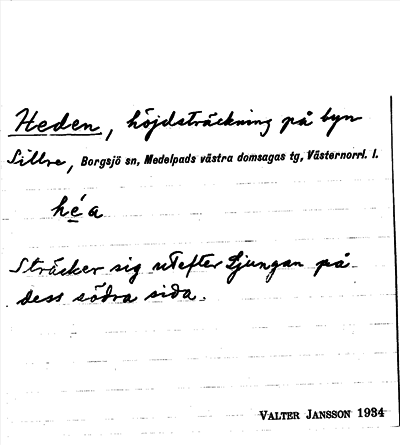 Heden, höjdsträckning på byn
Sillre, Borgsjö sn, Medelpads västra domsagas tg, Västernorrl. l.
hé̱a
Sträcker sig utefter Ljungan på
dess södra sida.
VALTER JANSSON 1934